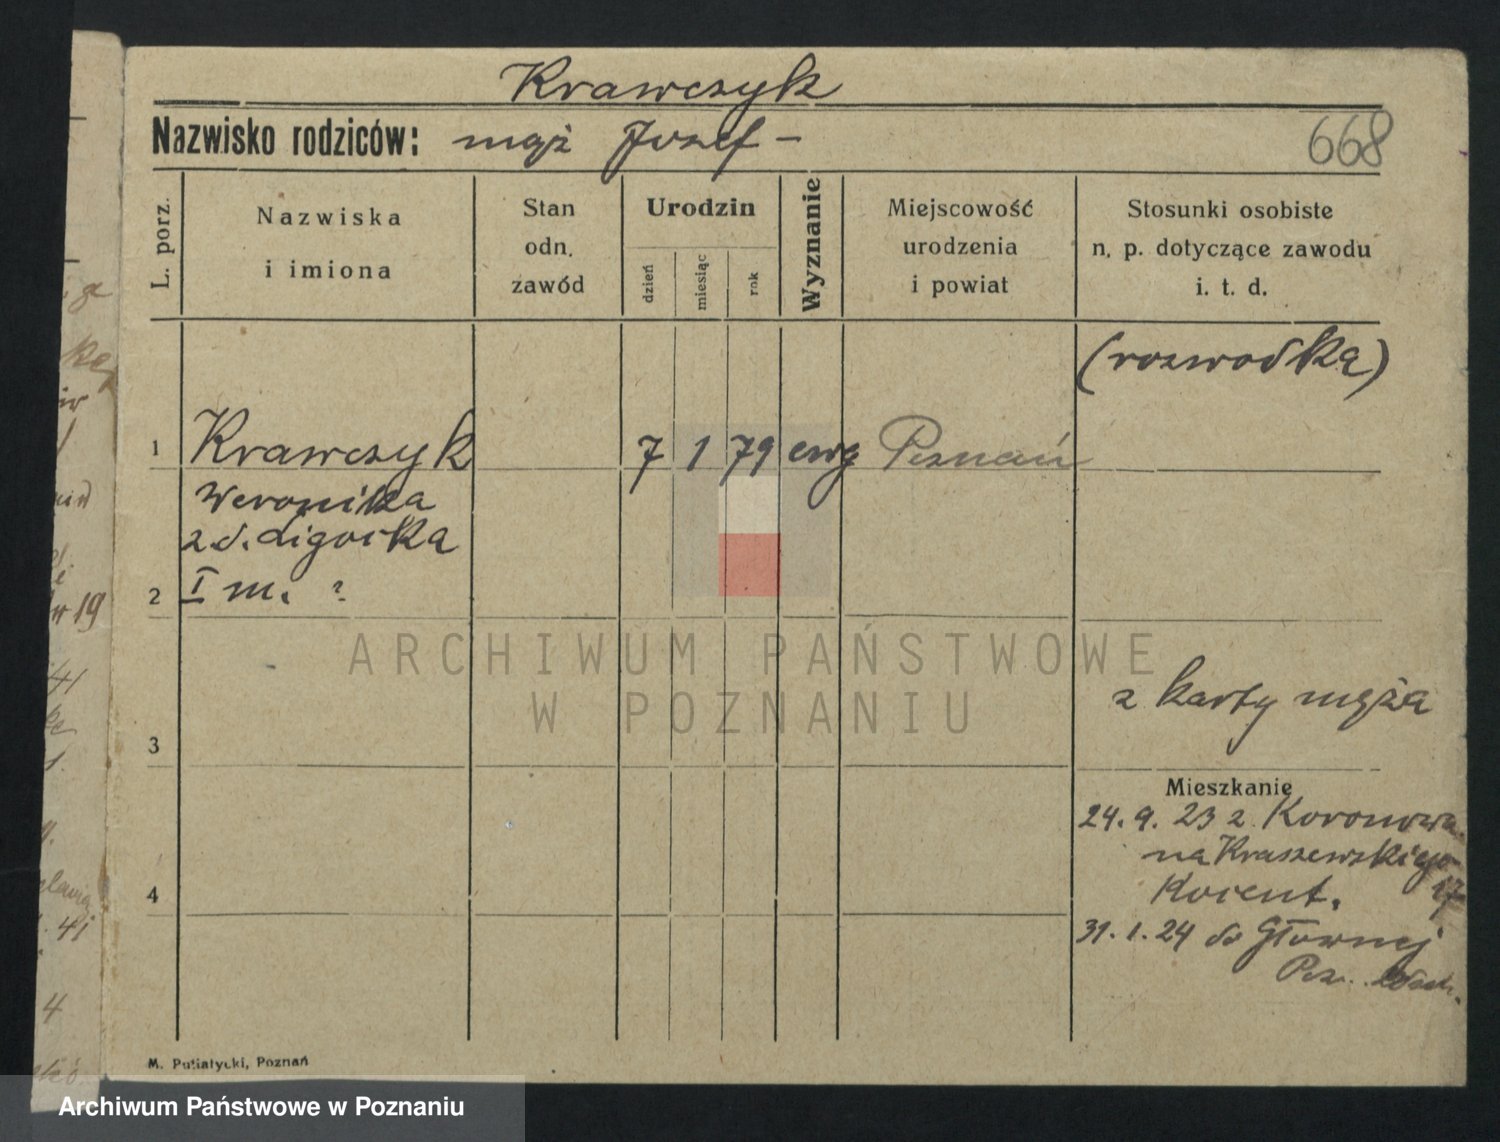 Krawczyk
Nazwisko rodziców: mąż Józef –
668
L. porz.
Nazwiska
i imiona
Stan
odn.
zawód
Urodzin
dzień
miesiąc
rok
Wyznanie
Miejscowość
urodzenia
i powiat
Stosunki osobiste
n. p. dotyczące zawodu
i. t. d.
(rozwodka)
1 Krawczyk 7 1 79 ewg Poznań
Weronika
z d. Ligocka
2 I m. ?
z karty męża
3
Mieszkanie
24. 9. 23 z Koronowa
na Kraszewskiego
17
4
31. 1. 24 do Głównej
Poz.
M. Putiatycki, Poznań
ARCHIWUM PAŃSTWOWE
W POZNANIU
Archiwum Państwowe w Poznaniu